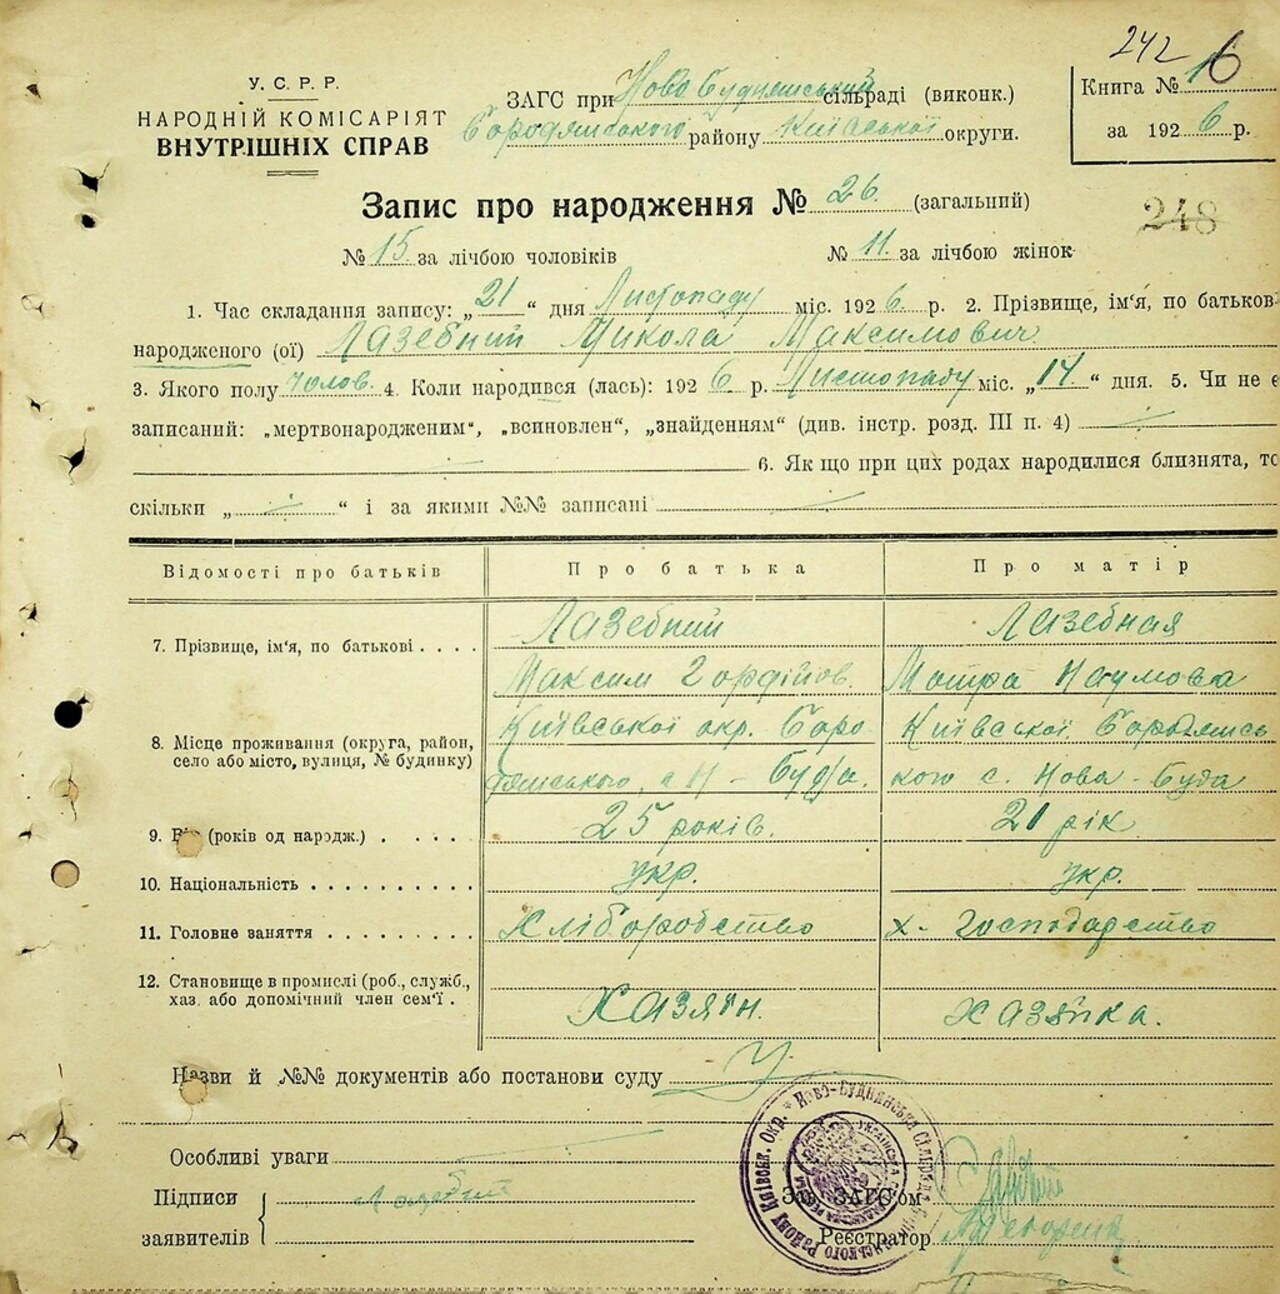 242
У. С. Р. Р.
НАРОДНІЙ КОМІСАРІЯТ
ВНУТРІШНІХ СПРАВ
ЗАГС при Ново Буднянський сільраді (виконк.)
Бородянського району Київської округи.
Книга № 16
за 1926 р.
Запис про народження № 26. (загальний)
248
№ 15. за лічбою чоловіків № 11. за лічбою жінок
1. Час складання запису: „21“ дня Листопаду міс. 1926. р. 2. Прізвище, ім‘я, по батьков
народженого (ої) Лазебний Микола Максимович
3. Якого полу чолов. 4. Коли народився (лась): 1926 р. Листопаду міс. „14.“ дня. 5. Чи не є
записаний: „мертвонародженим“, „всиновлен“, „знайденням“ (див. інстр. розд. III п. 4)
6. Як що при цих родах народилися близнята, то
скільки „ “ і за якими №№ записані
Відомості про батьків Про батька Про матір
7. Прізвище, ім‘я, по батькові . . . . Лазебний Лазебная
Максим Гордійов. Мотря Наумова
8. Місце проживання (округа, район, село або місто, вулиця, № будинку) Київської окр. Боро Київської. Бородянсь
дянського, с Н - Буда. кого с. Нова - Буда
9. (років од нардж.) . . . . 25 років. 21 рік
10. Національність . . . . . . . . . . укр. укр.
11. Головне заняття . . . . . . . . . Хліборобство х- господарство
12. Становище в промислі (роб., служб.,
хаз. або допомічний член сем‘ї . Хазяїн. хазяйка.
Назви й №№ документів або постанови суду
Особливі уваги
Підписи
заявителів
Лазебний
Зав. ЗАГС‘ом
Реєстратор
Ново-Буднянська